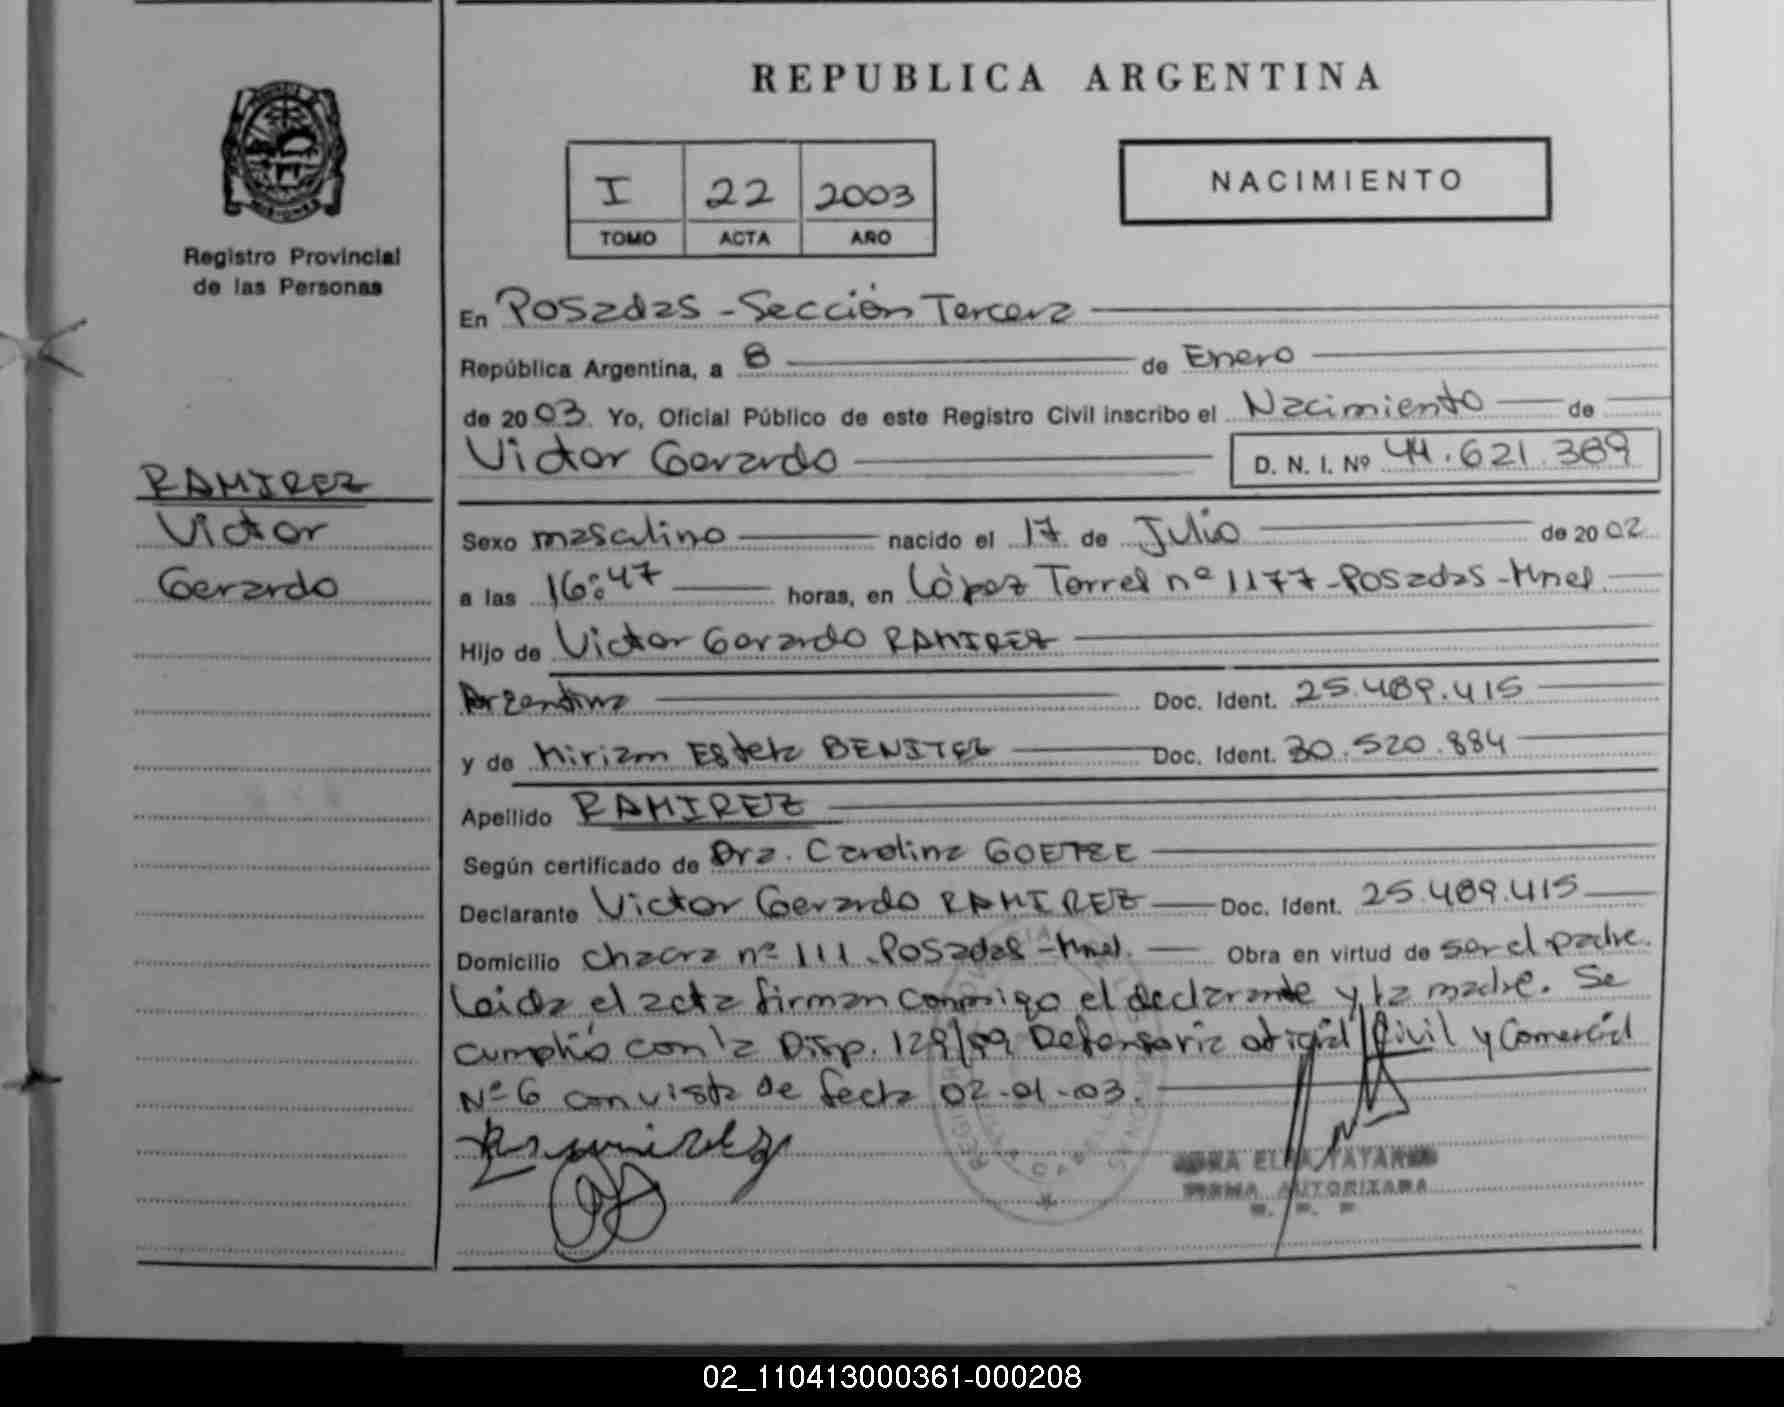 REPUBLICA ARGENTINA
I 22 2003
TOMO ACTA AÑO
NACIMIENTO
MISIONES
Registro Provincial
de las Personas
RAMIREZ
Victor
Gerardo
En Posadas - Sección Tercera
República Argentina, a 8 de Enero
de 2003. Yo, Oficial Público de este Registro Civil inscribo el Nacimiento de
Victor Gerardo D. N. I. Nº 44.621.389
Sexo masculino nacido el 17 de Julio de 2002
a las 16:47 horas, en López Torres nº 1177 - Posadas - Mnes.
Hijo de Victor Gerardo RAMIREZ
Argentina Doc. Ident. 25.489.415
y de Miriam Estela BENITEZ Doc. Ident. 30.520.884
Apellido RAMIREZ
Según certificado de Dra. Carolina GOETZE
Declarante Victor Gerardo RAMIREZ Doc. Ident. 25.489.415
Domicilio chacra nº 111 - Posadas - Mnes. Obra en virtud de ser el padre.
Leida el acta firman conmigo el declarante y la madre. Se
cumplió con la Disp. 129/99 Defensoria oficial Civil y Comercial
Nº 6 con vista de fecha 02-01-03.
Ramirez
FIRMA AUTORIZADA
02_110413000361-000208